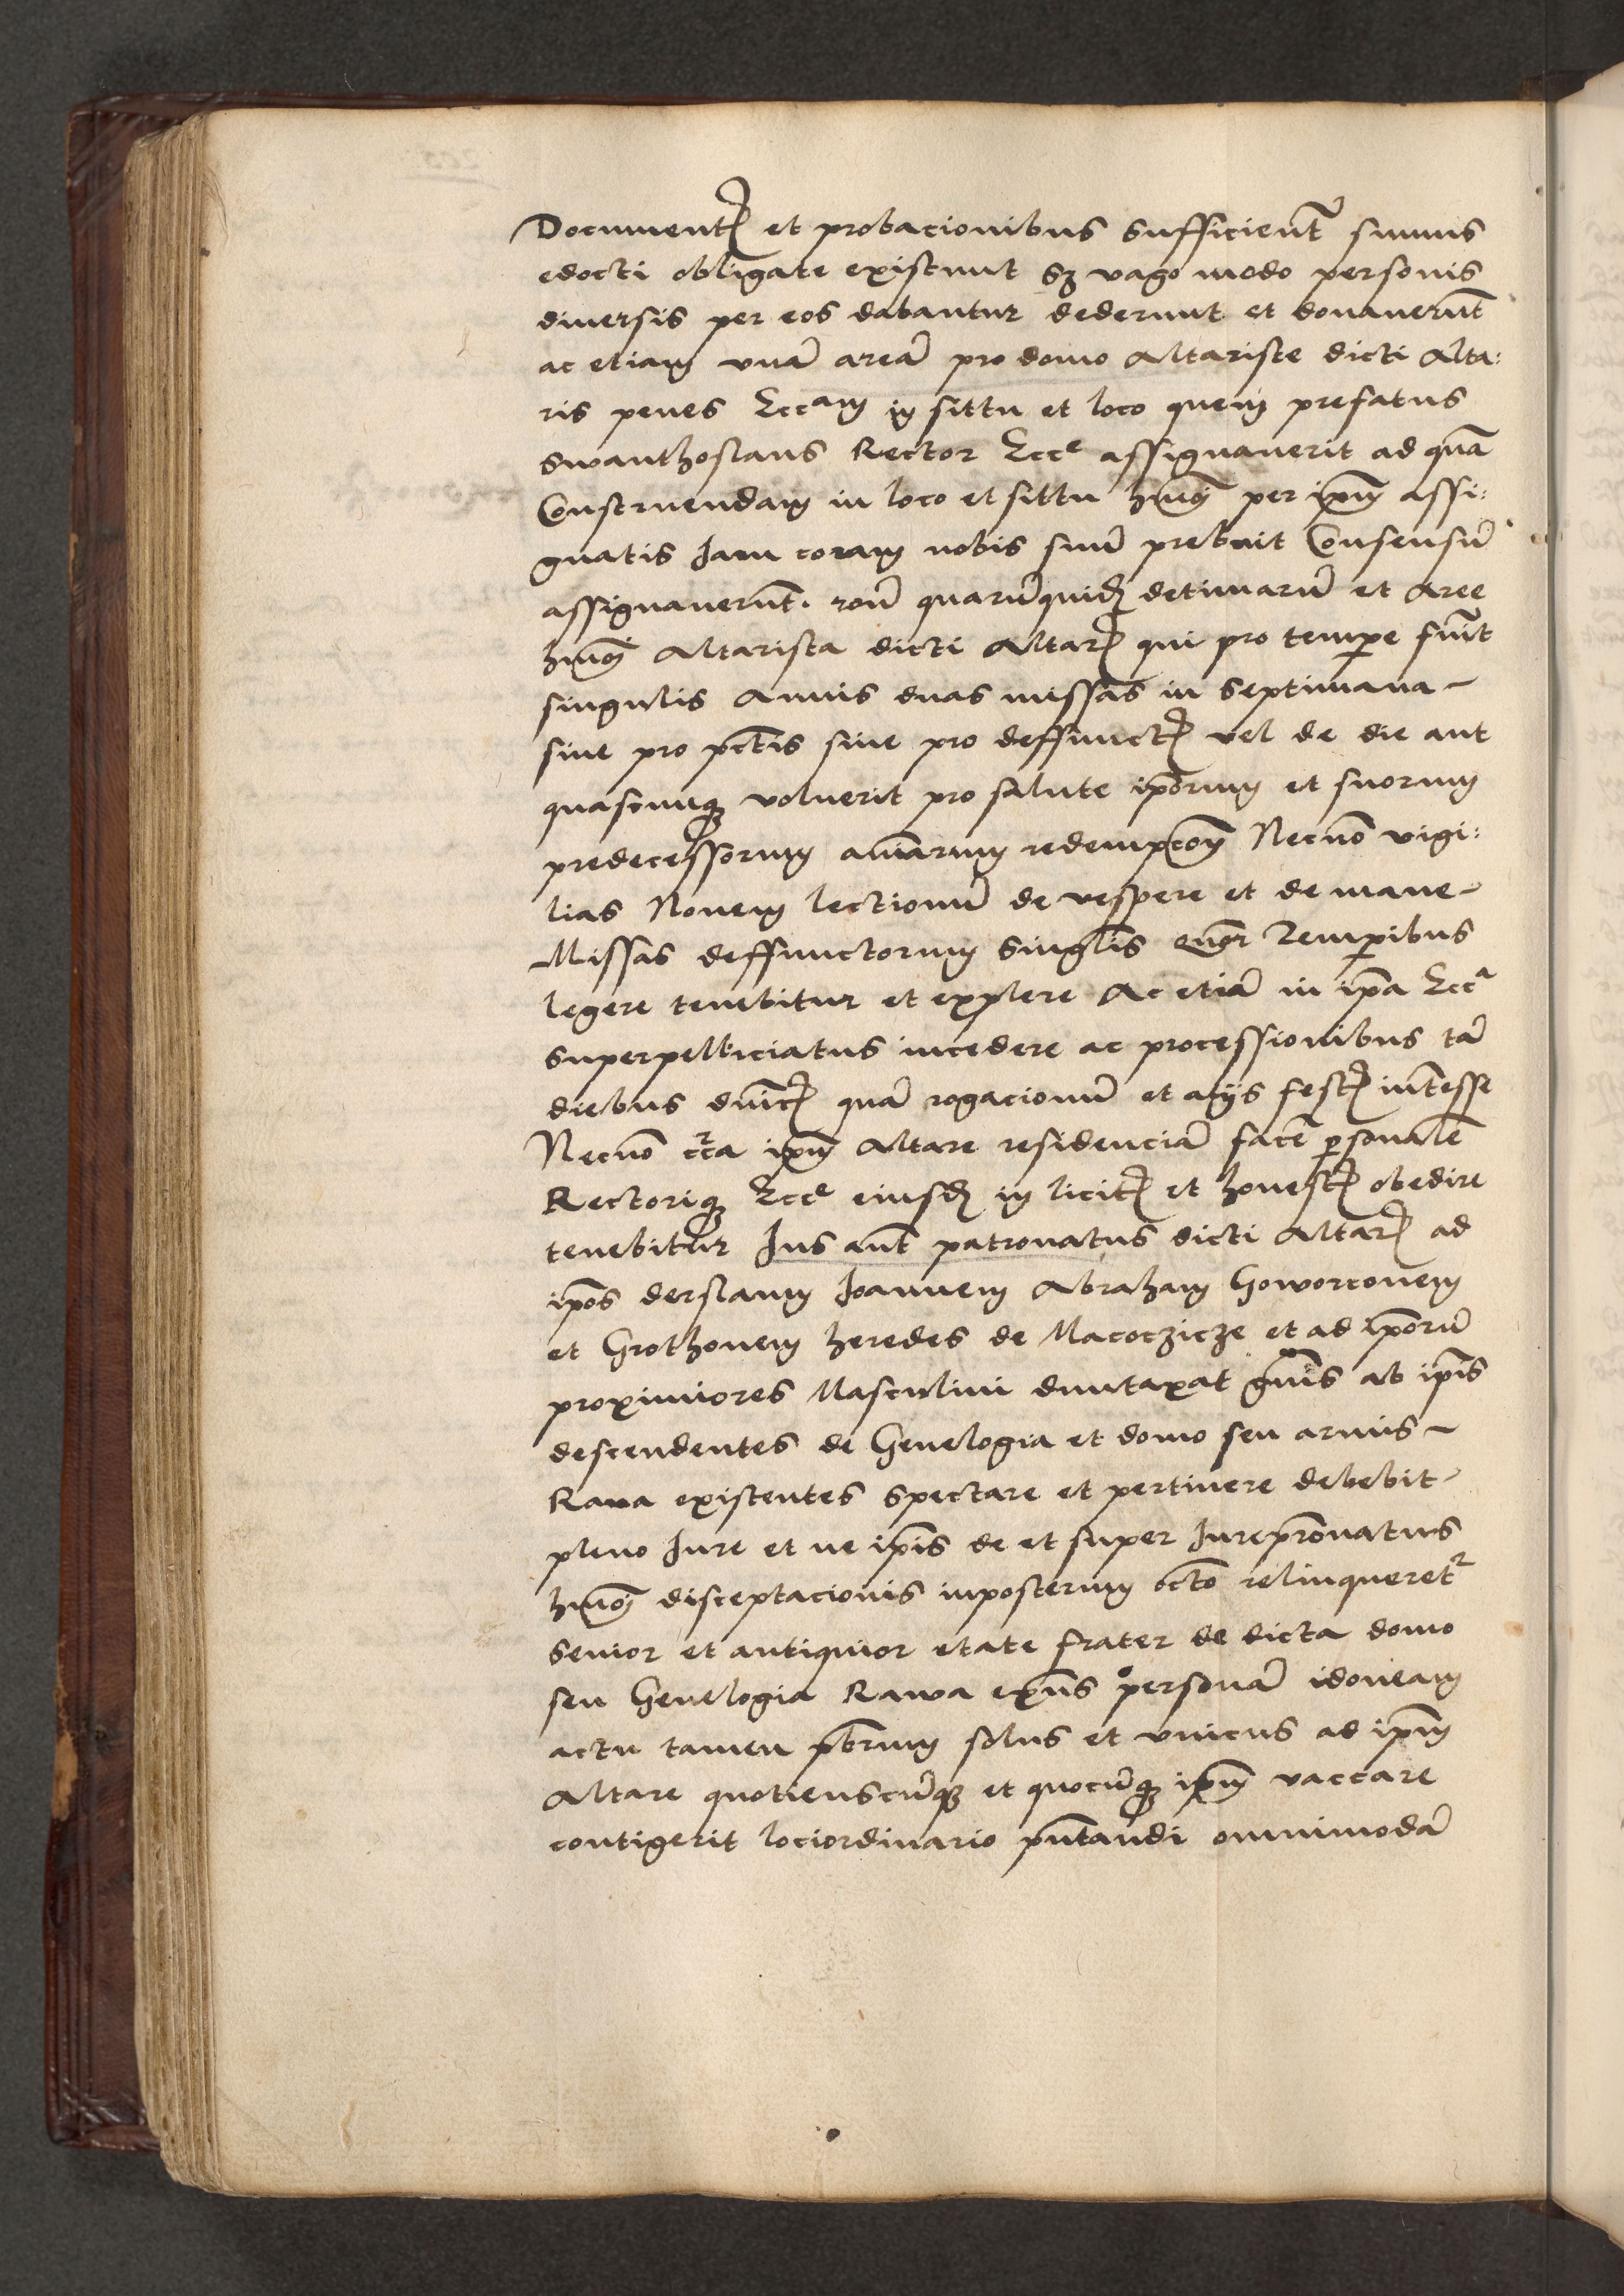 Document(is) et probacionibus sufficient(er) sumus
edocti obligate existunt s(ed) vago modo personis
diversis per eos dabantur dederunt et donaverūt
ac etiam vnā areā pro domo Altariste dicti Alta:
ris penes Eccam in sittu et loco quem prefatus
Swanthoslaus Rector Ecce assignaverit ad quā
Construendam in loco et sittu hmōi per ipm̄ assi:
gnatis Jam coram nobis suū prebuit Consensū
assignaverūt. rōne quarūquid(em) decimarū et Aree
hmōi Altarista dicti Altar(is) qui pro tempe fuīt
singulis Annis duas missas in septimana
siue pro pctīs siue pro deffunct(is) vel de die aut
quascunq(ue) voluerit pro salute ipōrum et suorum
predecessorum aīarum redempcōe Necnō vigi:
lias Novem lectionū de vespere et de mane
Missas deffunctorum singlīs quōr Tempibus
legere tenebitur et explere Ac etiā in ipā Ecca
superpelliciatus incedere ac processionibus tā
diebus dnīc(is) quā rogacionū et alijs fest(is) int̄esse
Necnō cīrca ipm̄ Altare residenciā face(re) p(er)sonalē
Rectoriq(ue) Ecce eiusd(em) in licit(is) et honest(is) obedire
tenebitur Jus aūt patronatus dicti Altar(is) ad
ipōs derslaum Joannem Abraham Goworconem
et Grothonem heredes de Macoczicze et ad ipōrū
proximiores Masculini duntaxat gn̄is ab ipīs
descendentes de Genelogia et domo seu armis
Rava existentes spectare et pertinere debebit
pleno Jure et ne ipīs de et super Jurepr̄onatus
hmōi disceptacionis inposterum occ(asi)o relinqueret(ur)
senior et antiquior etate frater de dicta domo
seu Genelogia Rawa exn̄s personā idoneam
actu tamen pr̄brum solus et vnicus ad ipm̄
Altare quotienscūq(ue) et quocūq(ue) ipm̄ vaccare
contigerit lociordinario pn̄tandi omnimodā